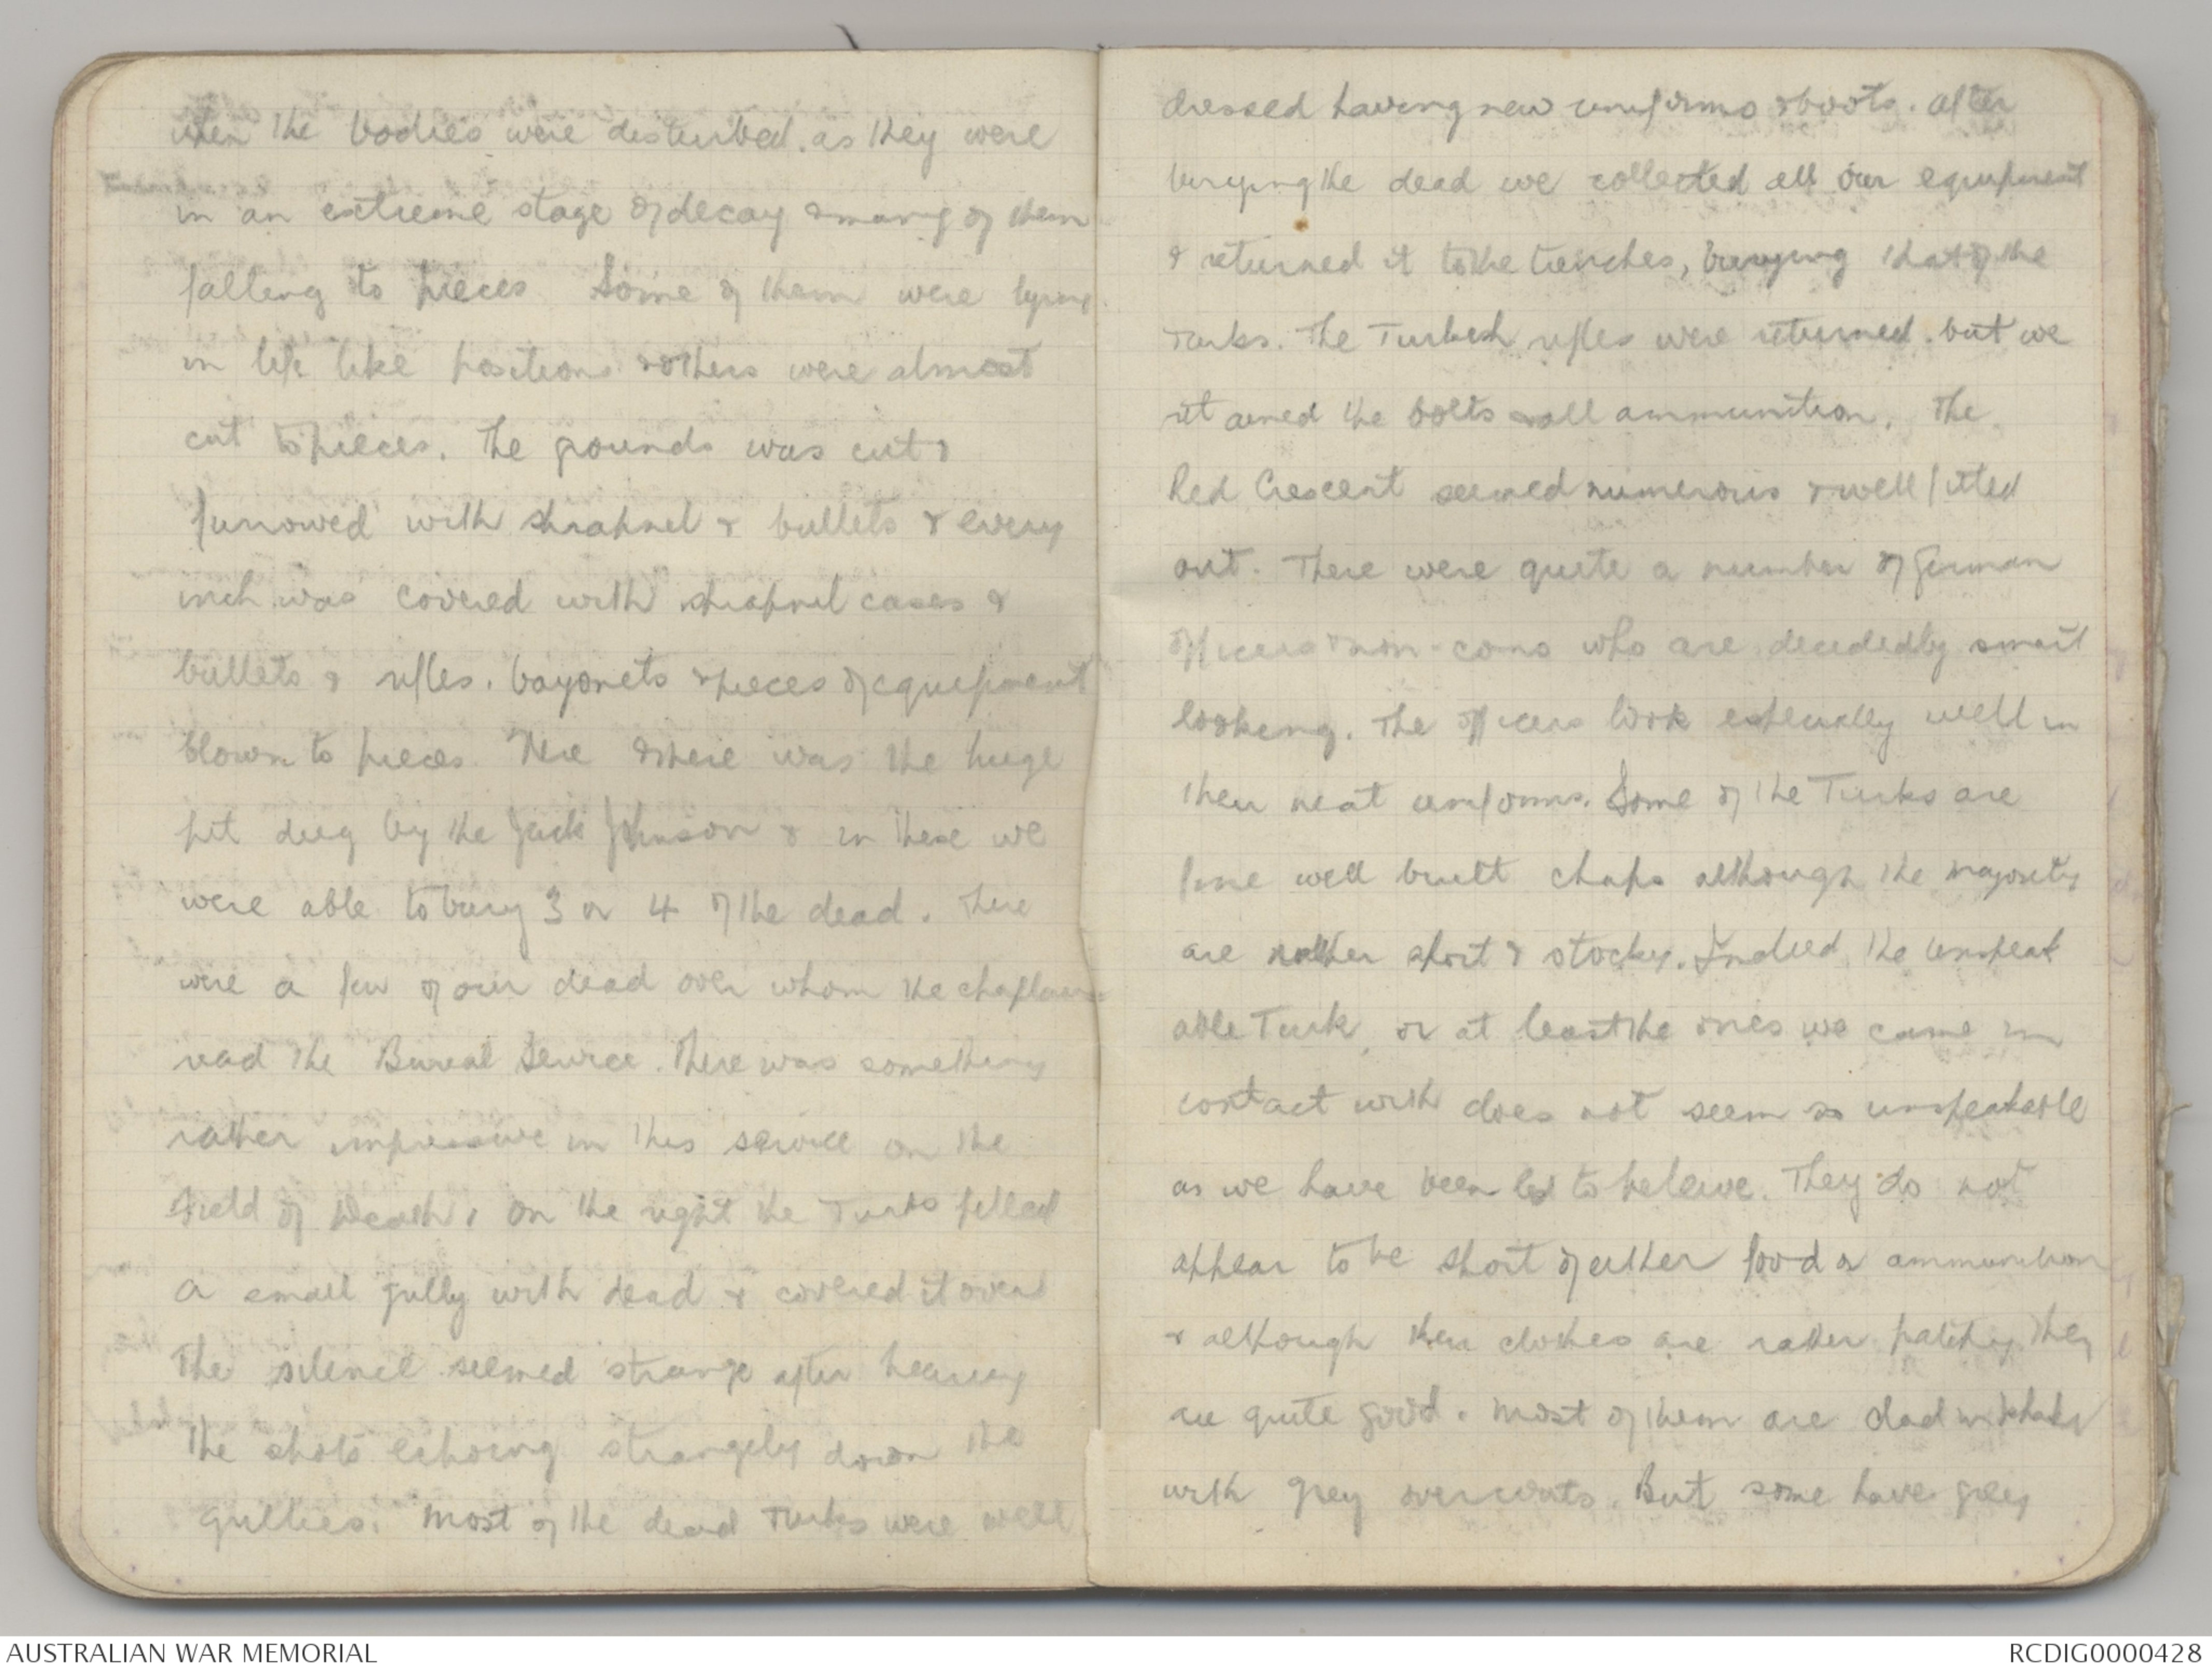 when the bodies were disturbed. as they were
in an extreme stage of decay & many of them
falling to pieces Some of them were lying
in life like positions & others were almost
cut to pieces. The grounds was cut &
furrowed with shrapnel & bullets & every
inch was covered with shrapnel cases &
bullets & rifles. bayonets & pieces of equipment
blown to pieces. Here & there was the huge
pit dug by the Jack Johnson & in these we
were able to bury 3 or 4 of the dead. There
were a few of our dead over whom the chaplain
read the Burial Service. There was something
rather impressive in this service on the
Field of Death. On the right the Turks filled
a small gully with dead & covered it over
The silence seemed strange after hearing
the shots echoing strangely down the
gullies. Most of the dead Turks were well
dressed having new uniforms & boots. After
burying the dead we collected all our equipment
& returned it to the trenches, burying that of the
Turks. The Turkish rifles were returned. but we
retained the bolts & all ammunition. The
Red Crescent seemed numerous & well fitted
out. There were quite a number of German
officers & non-coms who are decidedly smart
looking. The officers look especially well in
their neat uniforms. Some of the Turks are
fine well built chaps although the majority
are rather short & stocky. Indeed the unspeak
able Turk, or at least the ones we came in
contact with does not seem so unspeakable
as we have been led to beleive. They do not
appear to be short of either food or ammunition
& although their clothes are rather patchy they
are quite good. Most of them are clad in khaki
with grey overcoats. But some have grey
AUSTRALIAN WAR MEMORIAL
RCDIG0000428